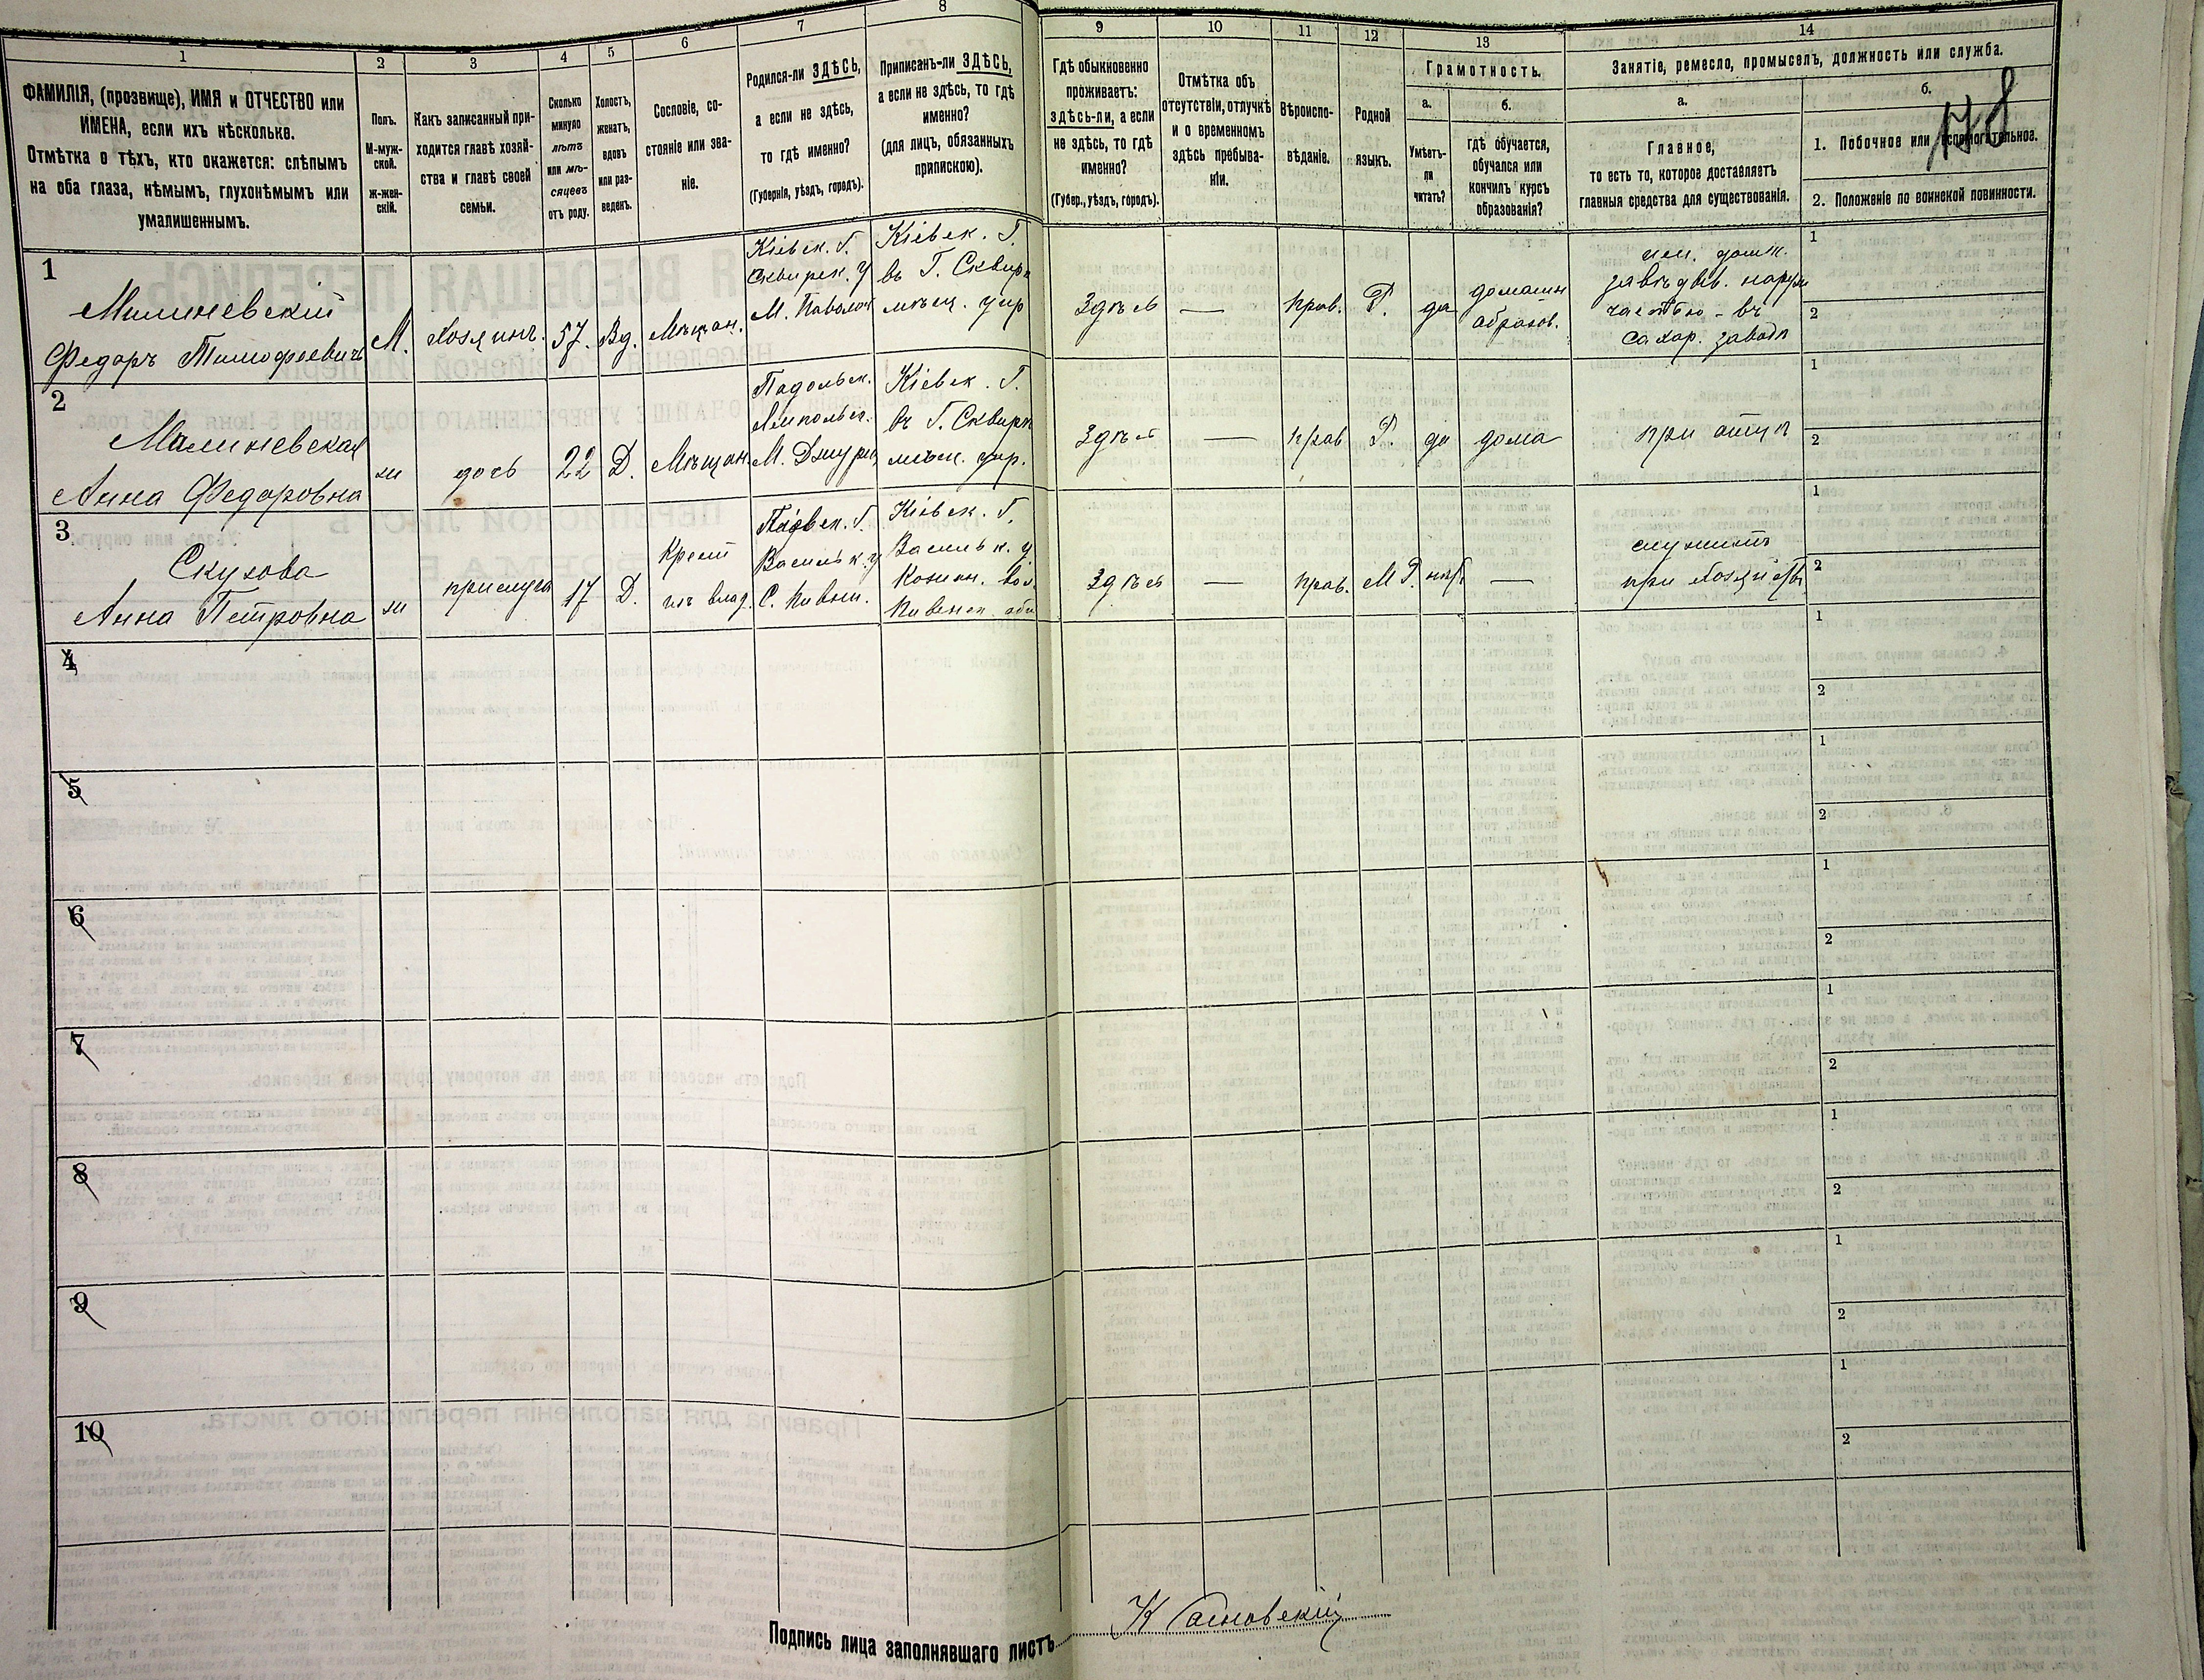 1
2
3
4
5
6
7
8
9
10
11
12
13
14
ФАМИЛІЯ, (прозвище), ИМЯ и ОТЧЕСТВО или
ИМЕНА, если ихъ нѣсколько.
Отмѣтка о тѣхъ, кто окажется: слѣпымъ
на оба глаза, нѣмымъ, глухонѣмымъ или
умалишеннымъ.
Полъ.
М-муж-
ской.
ж-жен-
скій.
Какъ записанный при-
ходится главѣ хозяй-
ства и главѣ своей
семьи.
Сколько
минуло
лѣтъ
или мѣ-
сяцевъ
отъ роду.
Холостъ,
женатъ,
вдовъ
или раз-
веденъ.
Сословіе, со-
стояніе или зва-
ніе.
Родился-ли ЗДѢСЬ,
а если не здѣсь,
то гдѣ именно?
(Губернія, уѣздъ, городъ).
Приписанъ-ли ЗДѢСЬ,
а если не здѣсь, то гдѣ
именно?
(для лицъ, обязанныхъ
припискою).
Гдѣ обыкновенно
проживаетъ:
здѣсь-ли, а если
не здѣсь, то гдѣ
именно?
(Губер., уѣздъ, городъ).
Отмѣтка объ
отсутствіи, отлучкѣ
и о временномъ
здѣсь пребыва-
ніи.
Вѣроиспо-
вѣданіе.
Родной
языкъ.
Грамотность.
а.
Умѣетъ-
ли
читать?
б.
гдѣ обучается,
обучался или
кончилъ курсъ
образованія?
Занятіе, ремесло, промыселъ, должность или служба.
а.
Главное,
то есть то, которое доставляетъ
главныя средства для существованія.
б.
178
1. Побочное или вспомогательное.
2. Положеніе по воинской повинности.
1
Малиневскій
Федоръ Тимофеевичъ
М.
Хозяинъ.
57.
Вд.
Мѣщан.
Кіевск. Г.
Сквирск. У
М. Паволоч
Кіевск. Г.
въ Г. Сквирѣ
мѣщ. упр
Здѣсь
—
прав.
Р.
да
домашн
образов.
завѣдыв. наруж
частью - въ
сахар. заводѣ
1
2
2
Малиневская
Анна Федоровна
ж
дочь
22
Д.
Мѣщан.
Подольск.
Ямпольск.
М. Джурин
Кіевск. Г.
въ Г. Сквирѣ
мѣщ. упр.
Здѣсь
—
прав
Р.
да
дома
при отцѣ
1
2
3
Скухова
Анна Петровна
ж
прислуга
17
Д.
Крест
изъ влад.
Васильк. у
Кіевск. Г.
Васильк. у
Здѣсь
—
прав.
М Р.
нѣт
—
служитъ
при хозяйствѣ
1
2
4
1
2
5
1
2
6
1
2
7
1
2
8
1
2
9
1
2
10
1
2
Подпись лица заполнявшаго листъ